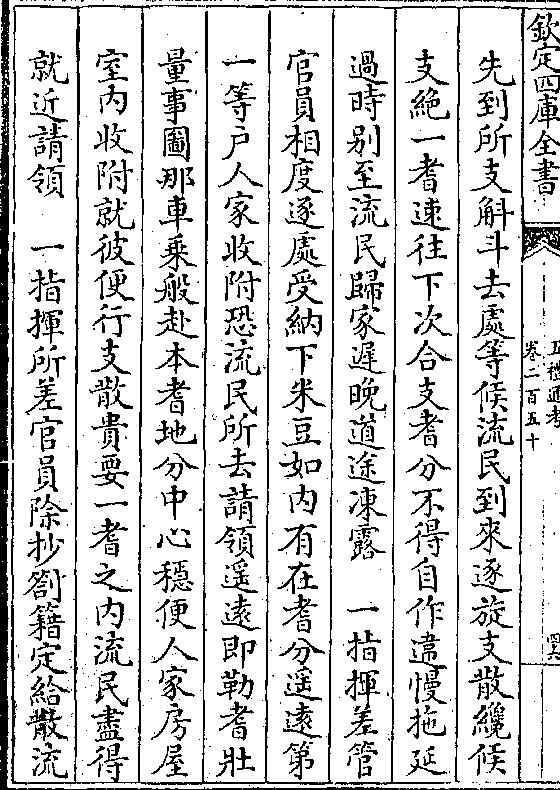 欽定四庫全書
五禮通考
卷二百五十
四六
先到所支斛斗去處等候流民到來逐旋支散纔候
支絶一耆速往下次合支耆分不得自作違慢拖延
過時别至流民歸家遲晚道途凍露　一指揮差管
官員相度逐處受納下米豆如内有在耆分遥遠第
一等户人家收附恐流民所去請領遥遠即勒耆壯
量事圖那車乘般赴本耆地分中心穩便人家房屋
室内收附就彼便行支散貴要一耆之内流民盡得
就近請領　一指揮所差官員除抄劄籍定給散流